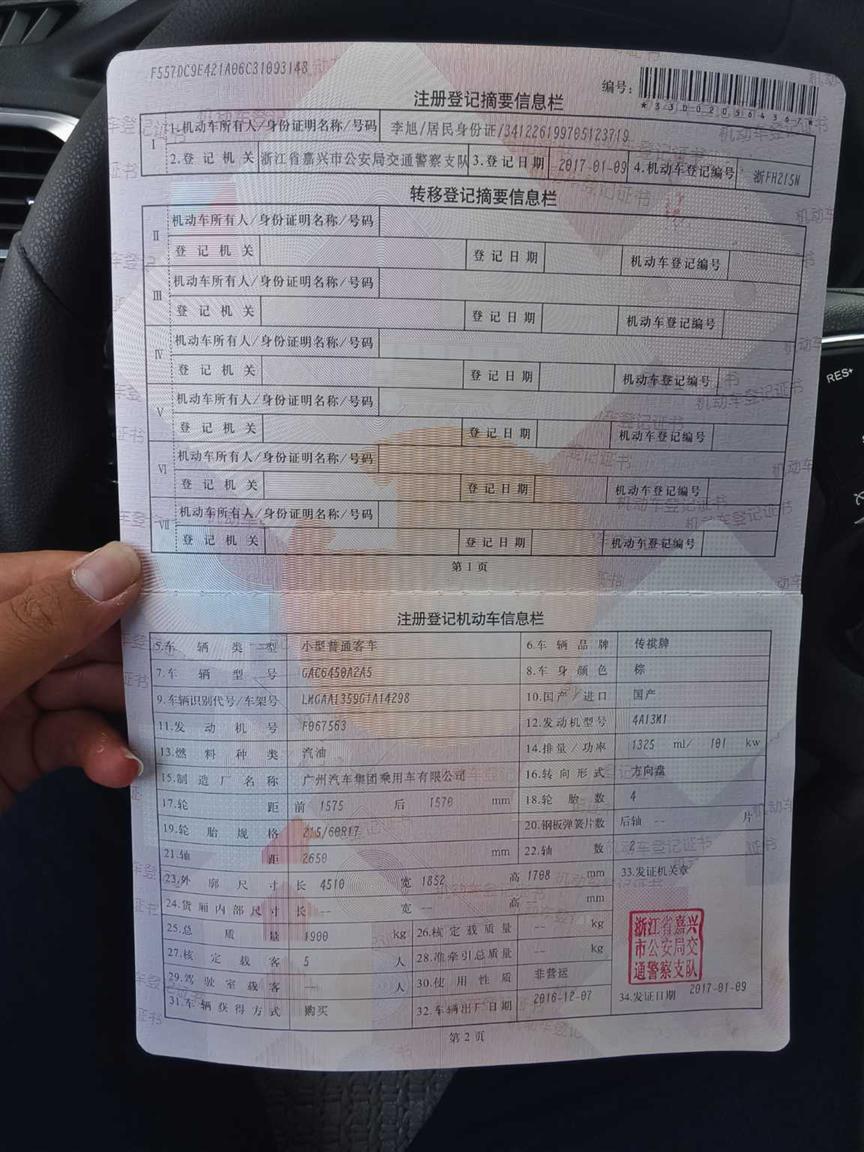 F557DC9E421A06C31093148
编号:
*330020564367*
注册登记摘要信息栏
I 1.机动车所有人/身份证明名称/号码 李旭/居民身份证/341226199705123719
2.登记机关 浙江省嘉兴市公安局交通警察支队 3.登记日期 2017-01-09 4.机动车登记编号 浙FH215N
转移登记摘要信息栏
II 机动车所有人/身份证明名称/号码
登记机关 登记日期 机动车登记编号
III 机动车所有人/身份证明名称/号码
登记机关 登记日期 机动车登记编号
IV 机动车所有人/身份证明名称/号码
登记机关 登记日期 机动车登记编号
V 机动车所有人/身份证明名称/号码
登记机关 登记日期 机动车登记编号
VI 机动车所有人/身份证明名称/号码
登记机关 登记日期 机动车登记编号
VII 机动车所有人/身份证明名称/号码
登记机关 登记日期 机动车登记编号
第1页
注册登记机动车信息栏
5.车辆类型 小型普通客车 6.车辆品牌 传祺牌
7.车辆型号 GAC6450A2A5 8.车身颜色 棕
9.车辆识别代号/车架号 LMGAA1359G1A14298 10.国产/进口 国产
11.发动机号 F067563 12.发动机型号 4A13M1
13.燃料种类 汽油 14.排量/功率 1325 ml/ 101 kw
15.制造厂名称 广州汽车集团乘用车有限公司 16.转向形式 方向盘
17.轮距 前 1575 后 1570 mm 18.轮胎数 4
19.轮胎规格 215/60R17 20.钢板弹簧片数 后轴 -- 片
21.轴距 2650 mm 22.轴数 2
23.外廓尺寸 长 4510 宽 1852 高 1708 mm 33.发证机关章
24.货厢内部尺寸 长 -- 宽 -- 高 -- mm
25.总质量 1900 kg 26.核定载质量 -- kg
27.核定载客 5 人 28.准牵引总质量 -- kg
29.驾驶室载客 -- 人 30.使用性质 非营运
31.车辆获得方式 购买 32.车辆出厂日期 2016-12-07 34.发证日期 2017-01-09
浙江省嘉兴
市公安局交
通警察支队
第2页
RES+